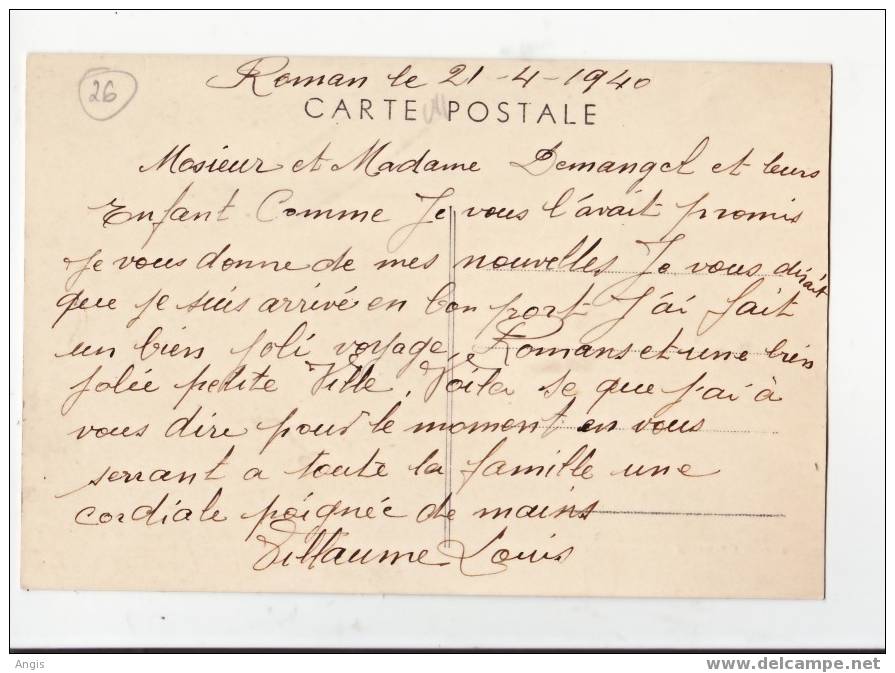 26
Roman le 21-4-1940
CARTE POSTALE
Mosieur et Madame Demangel et leurs
Enfant Comme Je vous l'avait promis
Je vous donne de mes nouvelles Je vous dirait
que je suis arrivé en bon port J'ai fait
un bien joli voyage, Romans et une bien
jolie petite Ville. Voila se que j'ai à
vous dire pour le moment en vous
serrant a toute la famille une
cordiale poignée de mains
Villaume Louis
Angis
www.delcampe.net